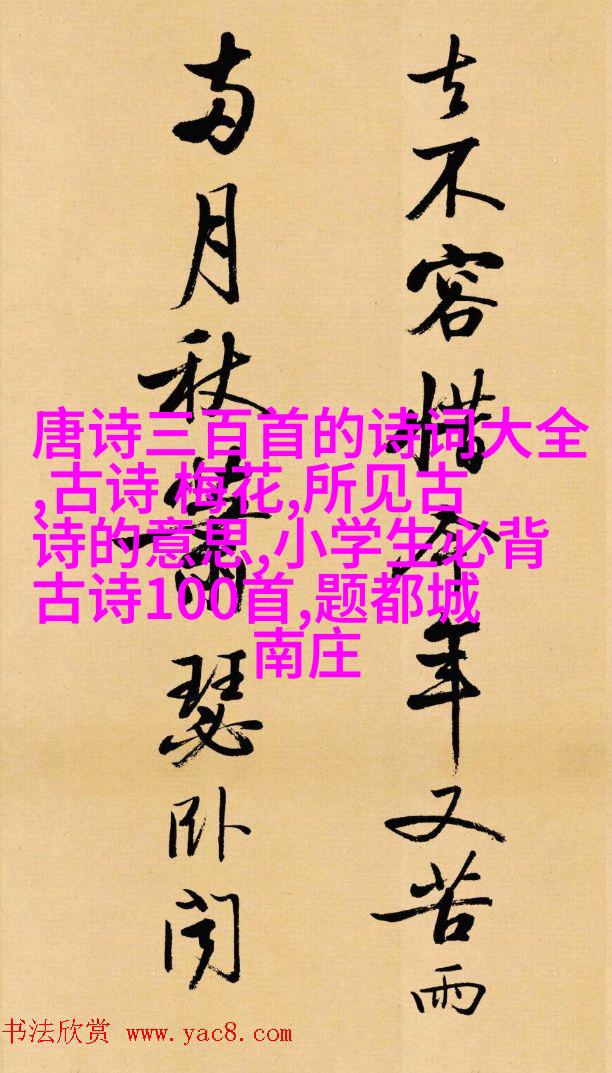 去不容惜今年又苦雨
两月秋萧瑟卧闻
唐诗三百首的诗词大全
,古诗 梅花,所见古
诗的意思,小学生必背
古诗100首,题都城
南庄
书法欣赏 www.yac8.com